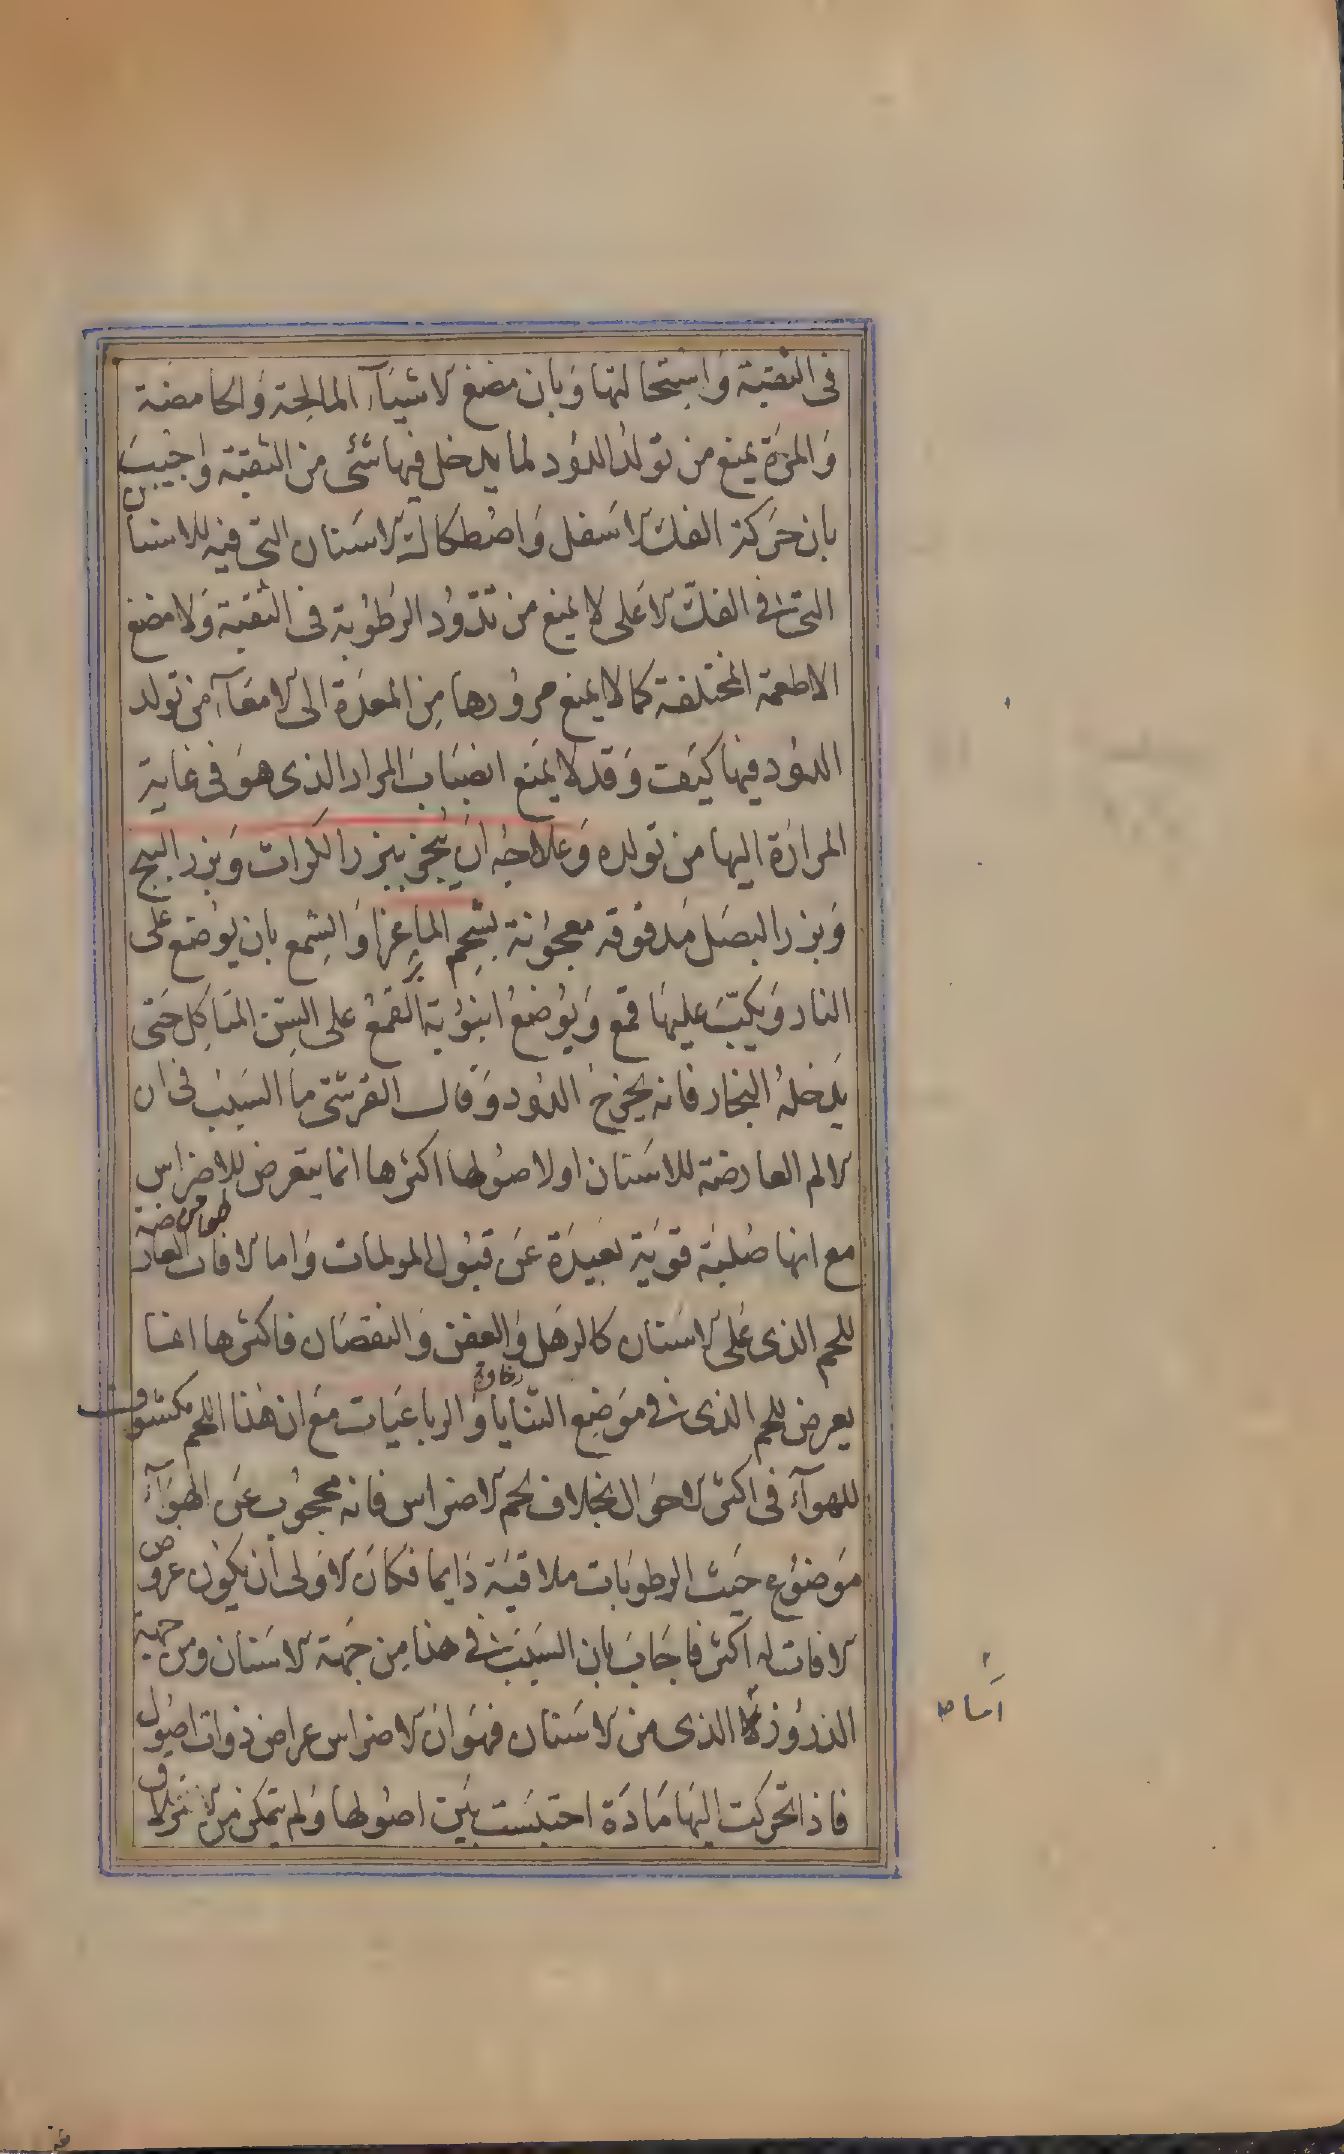 فى الثقبة وَاستحالتها وَبان مضغ الاشيَآء المالِحة وَالحامضة
وَالمرّة يمنع من تولد الدُود لما يدخل فيها شئ من الثقبة واجيبَ
بان حَركة الفك الاسفل وَاصْطكاك الاسَنان التى فيه للاسنان
التى فى الفكّ الاعَلى لا يمنع من تدَوُد الرطُوبة فى الثقبة وَلا مضغ
الاطعمة المختلفة كما لا يمنع مرورها مِن المعدَة الى الامعَآء من تولد
الدُود فيها كيَف وَقد لا يمَنع انصبَابَ المرار الذى هوَ فى غاية
المرارَة اليها من تولده وَعلاجهُ ان يُبخر ببزر الكراث وَبزر البنج
وَبزر البصَل مَدقوقه معجوُنة بشحِم الماعِز اوَ الشِمع بان يوُضع على
النار وَيكبّ عليهَا قمع وَيوُضعُ انبوُبة القمعُ على السِنّ المتَاكِل حَتى
يَدخلهُ البخار فانه يخرجُ الدُود وَقال القرشى ما السَببُ فى ان
الالم العارضة للاسَنان او لاصوُلها اكثرها انما يتعرض للاضراس
طواحن
مع انها صُلبة قويَة بعَيدَة عَن قبُول المولمات وَاما الافات العارضة
للحم الذى عَلى الاسَنان كالرهَل وَالعفن وَالنقصَان فاكثرها انما
رخاوة
يعرض للحم الذى فى موَضِع الثنَايا وَالرباعيَات معَ ان هَذا اللحم مكشوف
للهوآء فى اكثر الاحوَال بخلاف لحم الاضراس فانه محجوُب عَن الهوَآء
مَوضوُع حَيث الرطوبَات ملاقيَة دَايما فكانَ الاوَلى اَن يكوُن عروض
الافات له اكثر فاجَابَ بان السَبَب فى هذا مِن جَهة الاسَنان ومن جهة
الدردُور الذى من الاسَنان فهوَ انَ الاضراس عراض ذوات اصوُل
فاذا تحركت اليهَا مَادَة احتبسَت بيَن اصوُلها وَلم يتمكن من
اَما